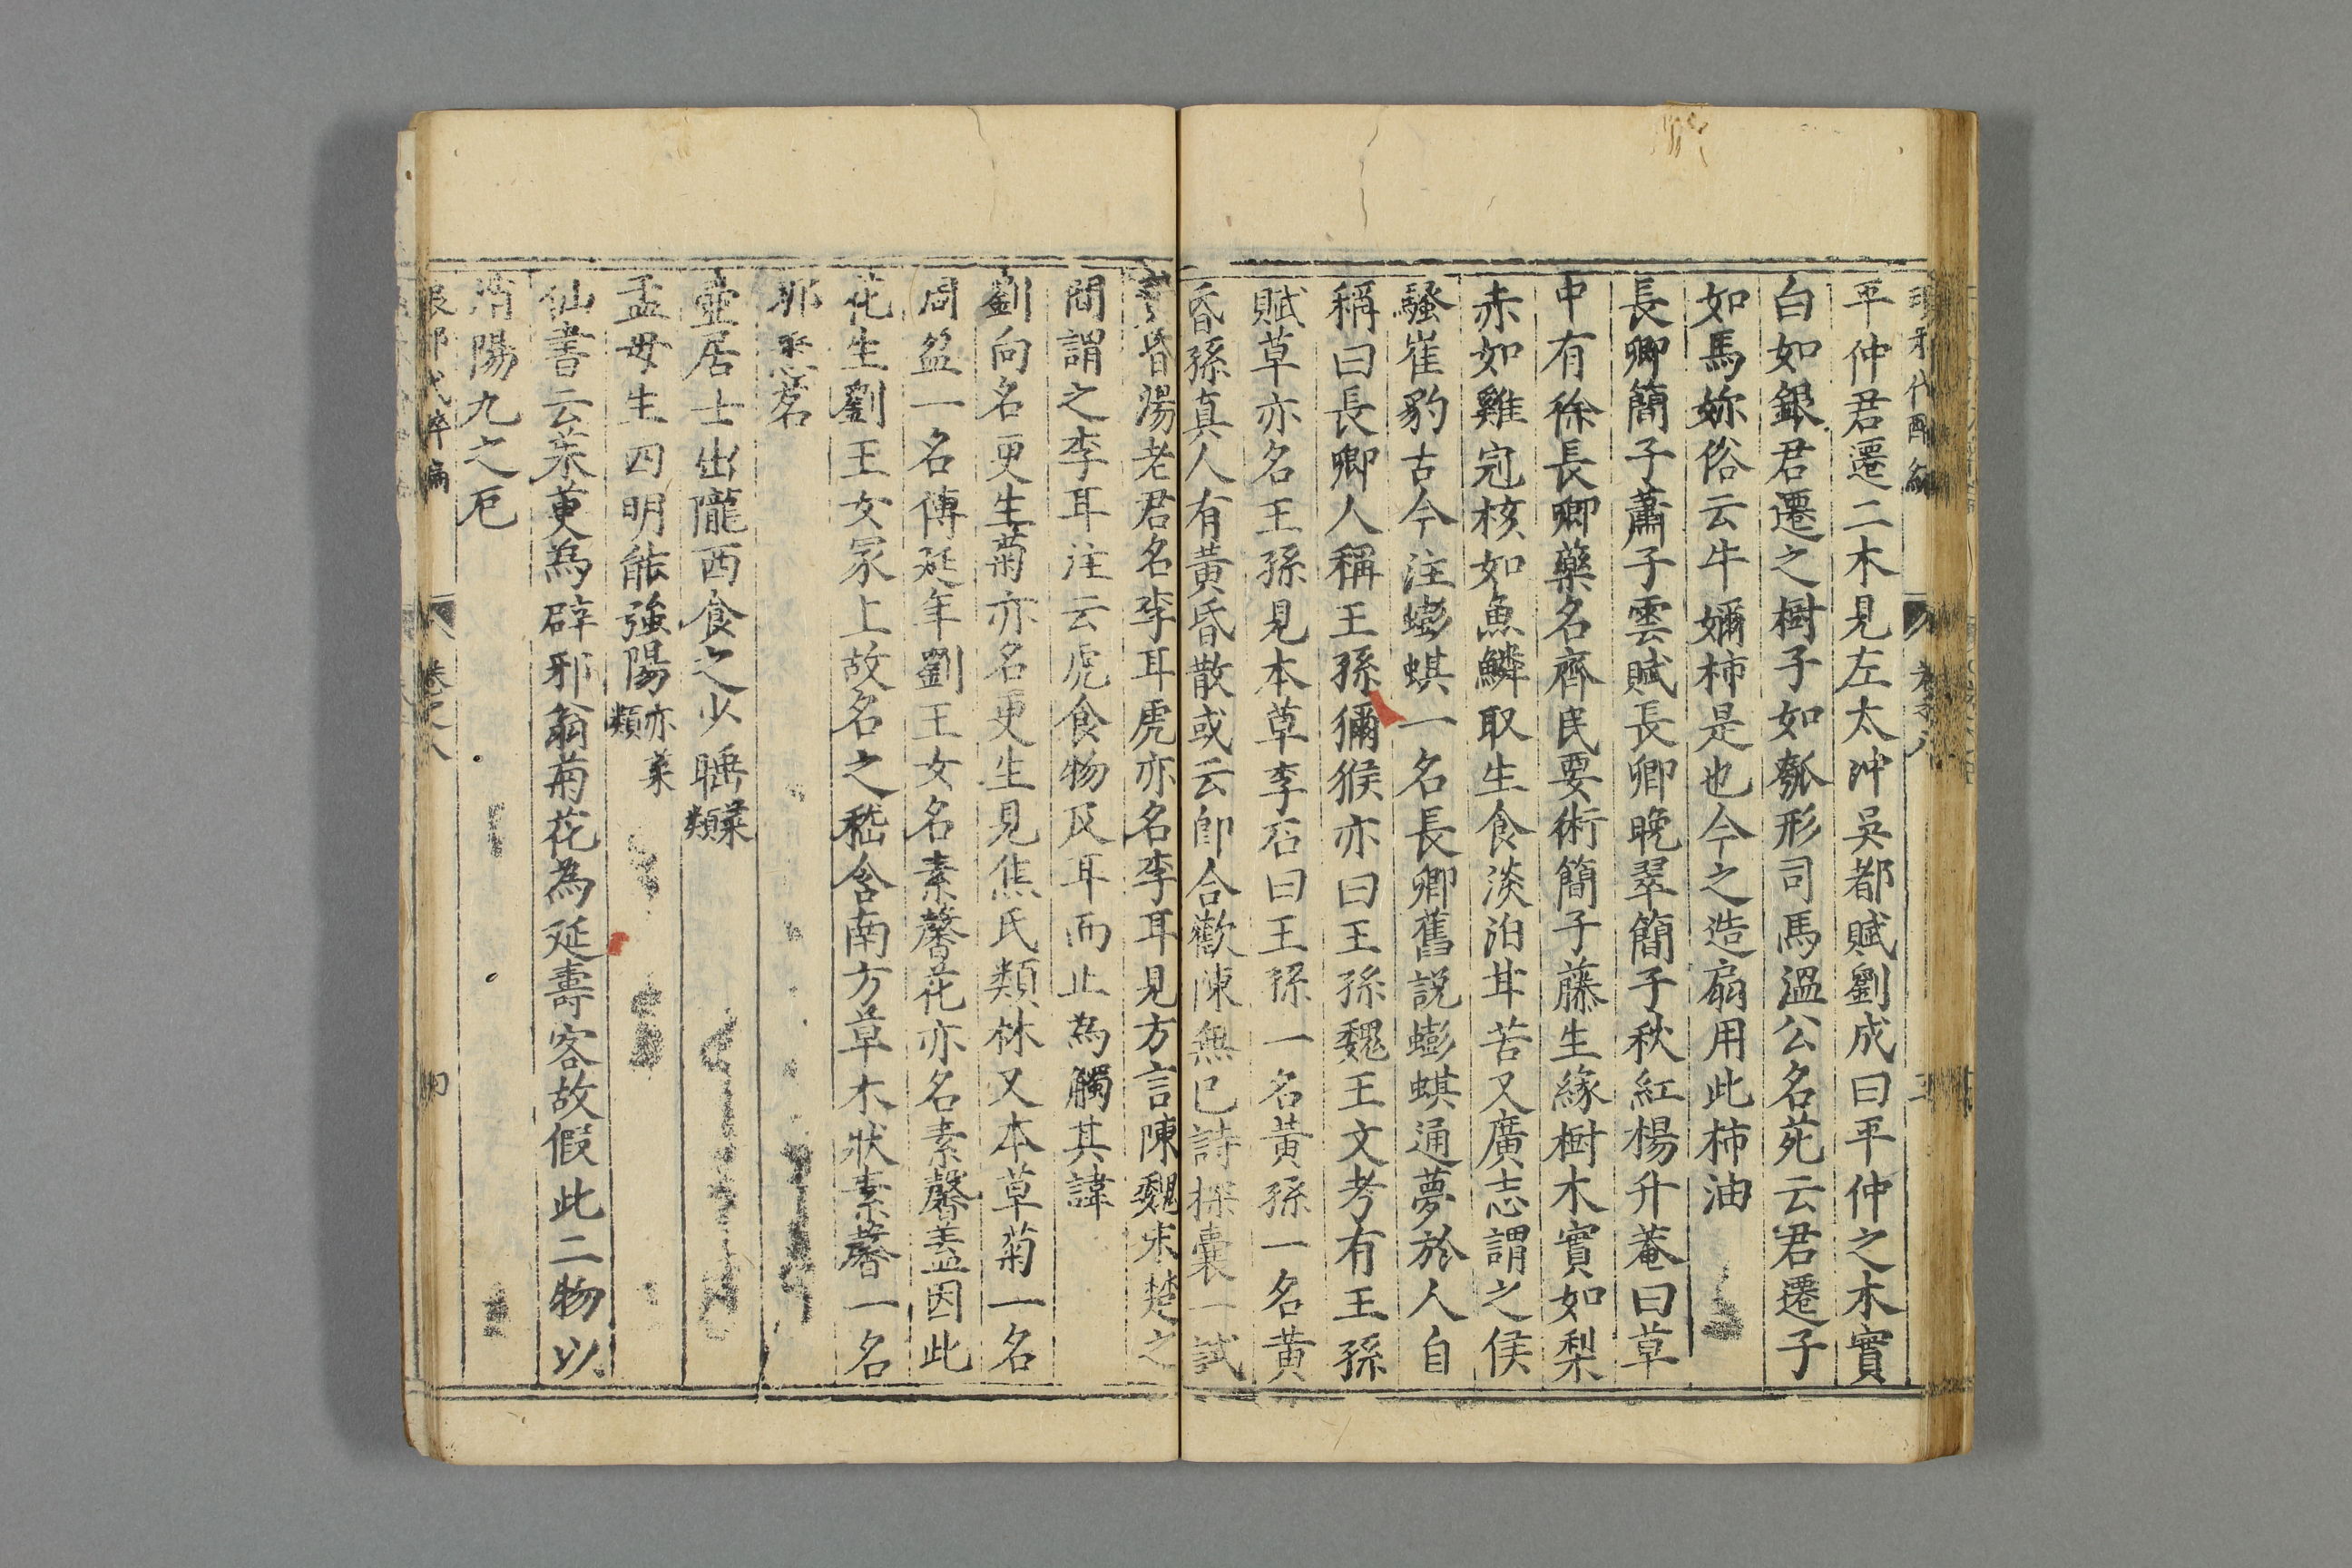 平仲君遷二木見左太冲吳都賦劉成曰平仲之木實
白如銀君遷之樹子如瓠形司馬溫公名苑云君遷子
如馬妳俗云牛嬭柿是也今之造扇用此柿油
長卿簡子蕭子雲賦長卿晚翠簡子秋紅楊升菴曰草
中有徐長卿藥名齊民要術簡子藤生緣樹木實如梨
赤如雞冠核如魚鱗取生食淡泊甘苦又廣志謂之侯
騷崔豹古今注蟛蜞一名長卿舊説蟛蜞通夢於人自
稱曰長卿人稱王孫獼猴亦曰王孫魏王文考有王孫
賦草亦名王孫見本草李石曰王孫一名黃孫一名黃
昏孫真人有黃昏散或云卽合歡陳無已詩探囊一試
黃昏湯老君名李耳虎亦名李耳見方言陳魏宋楚之
間謂之李耳注云虎食物及耳而止為觸其諱
劉向名更生菊亦名更生見焦氏類林又本草菊一名
周盈一名傅延年劉王女名素馨花亦名素馨盖因此
花生劉王女冢上故名之嵇含南方草木狀素馨一名
那悉茗
壷居士出隴西食之少𦖋菜類
孟母生四明能強陽亦菜類
仙書云茱萸為辟邪翁菊花為延壽客故假此二物以
消陽九之厄
卷之八 四